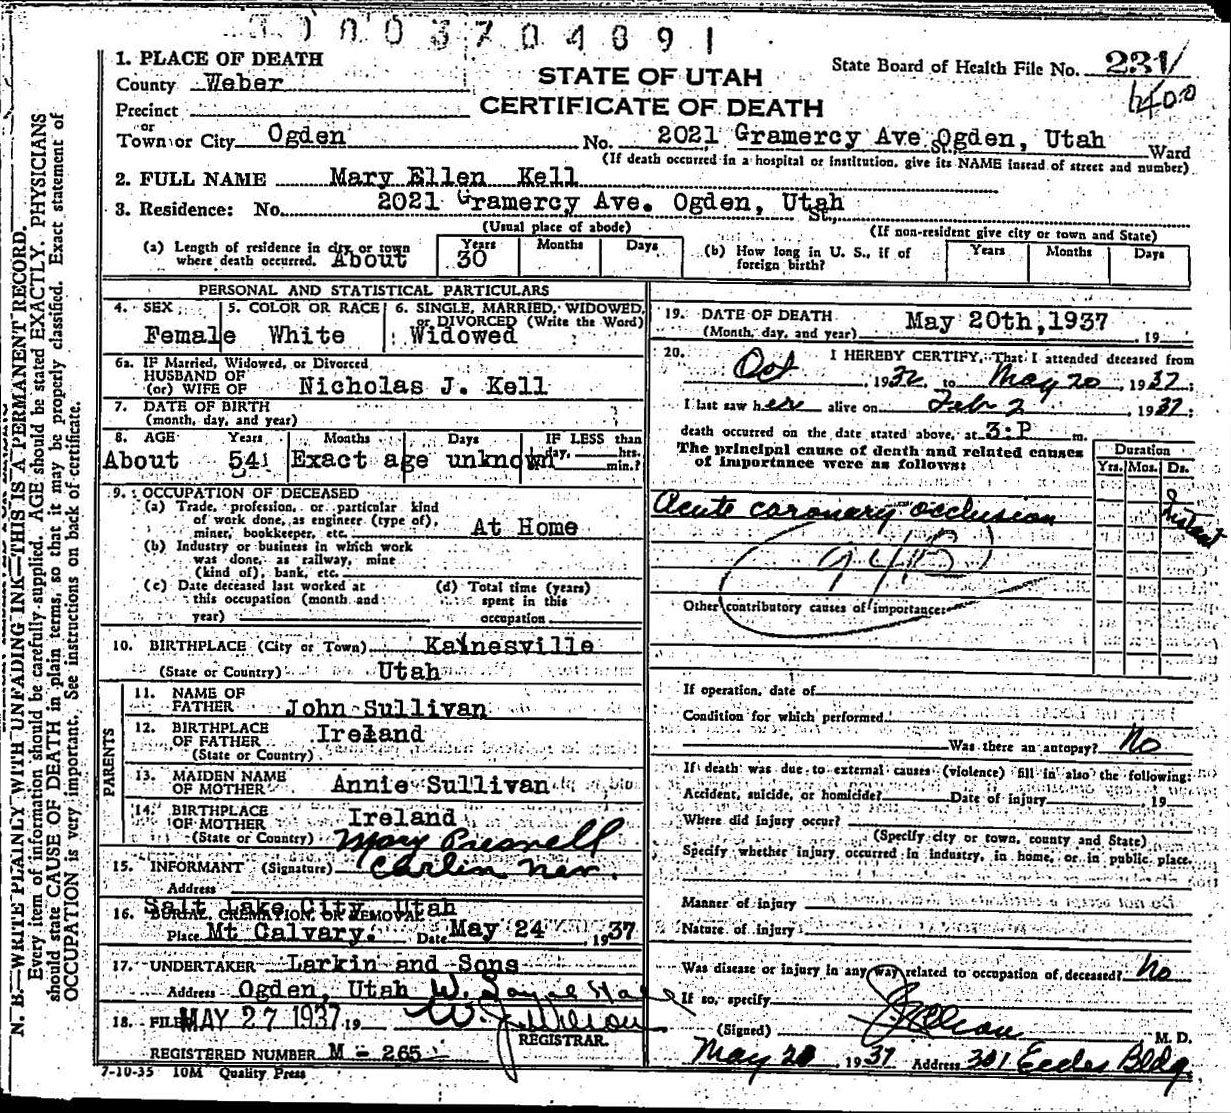 0003704091
1. PLACE OF DEATH
County Weber
STATE OF UTAH
CERTIFICATE OF DEATH
State Board of Health File No. 231
400
Precinct
or
Town or City Ogden No. 2021 Gramercy Ave Ogden, Utah St. Ward
(If death occurred in a hospital or institution, give its NAME instead of street and number)
2. FULL NAME Mary Ellen Kell
3. Residence: No. 2021 Gramercy Ave. Ogden, Utah St.,
(Usual place of abode) (If non-resident give city or town and State)
(a) Length of residence in city or town where death occurred. About Years 30 Months Days
(b) How long in U. S., if of foreign birth? Years Months Days
PERSONAL AND STATISTICAL PARTICULARS
4. SEX Female
5. COLOR OR RACE White
6. SINGLE, MARRIED, WIDOWED, or DIVORCED (Write the Word) Widowed
6a. IF Married, Widowed, or Divorced
HUSBAND OF
(or) WIFE OF Nicholas J. Kell
7. DATE OF BIRTH
(month, day, and year)
8. AGE Years Months Days IF LESS than
day, hrs.
min.?
About 54 Exact age unknown
9. OCCUPATION OF DECEASED
(a) Trade, profession, or particular kind
of work done, as engineer (type of),
miner, bookkeeper, etc. At Home
(b) Industry or business in which work
was done, as railway, mine
(kind of), bank, etc.
(c) Date deceased last worked at
this occupation (month and
year)
(d) Total time (years)
spent in this
occupation
10. BIRTHPLACE (City or Town) Kainesville
(State or Country) Utah
PARENTS
11. NAME OF
FATHER John Sullivan
12. BIRTHPLACE
OF FATHER Ireland
(State or Country)
13. MAIDEN NAME
OF MOTHER Annie Sullivan
14. BIRTHPLACE
OF MOTHER Ireland
(State or Country)
15. INFORMANT (Signature) Mary
Carlin Nev.
Address
Salt Lake City, Utah
16. BURIAL, CREMATION, OR REMOVAL
Place Mt Calvary. Date May 24 1937
17. UNDERTAKER Larkin and Sons
Address Ogden, Utah
18. FILED MAY 27 1937 19 W. J. Wilson
REGISTRAR.
REGISTERED NUMBER M - 265
7-10-35 10M Quality Press
19. DATE OF DEATH May 20th, 1937
(Month, day, and year) , 19
20. I HEREBY CERTIFY, That I attended deceased from
Oct , 1932, to May 20, 1937;
I last saw her alive on Feb 2, 1937;
death occurred on the date stated above, at 3:P m.
The principal cause of death and related causes
of importance were as follows:
Duration
Yrs. Mos. Ds.
Acute coronary occlusion Instant
94B
Other contributory causes of importance:
If operation, date of
Condition for which performed
Was there an autopsy? No
If death was due to external causes (violence) fill in also the following:
Accident, suicide, or homicide? Date of injury , 19
Where did injury occur?
(Specify city or town, county and State)
Specify whether injury occurred in industry, in home, or in public place.
Manner of injury
Nature of injury
Was disease or injury in any way related to occupation of deceased? No
If so, specify
(Signed) M. D.
May 20, 1937 Address 301 Eccles Bldg.
N. B.—WRITE PLAINLY WITH UNFADING INK—THIS IS A PERMANENT RECORD.
Every item of information should be carefully supplied. AGE should be stated EXACTLY. PHYSICIANS
should state CAUSE OF DEATH in plain terms, so that it may be properly classified. Exact statement of
OCCUPATION is very important. See instructions on back of certificate.